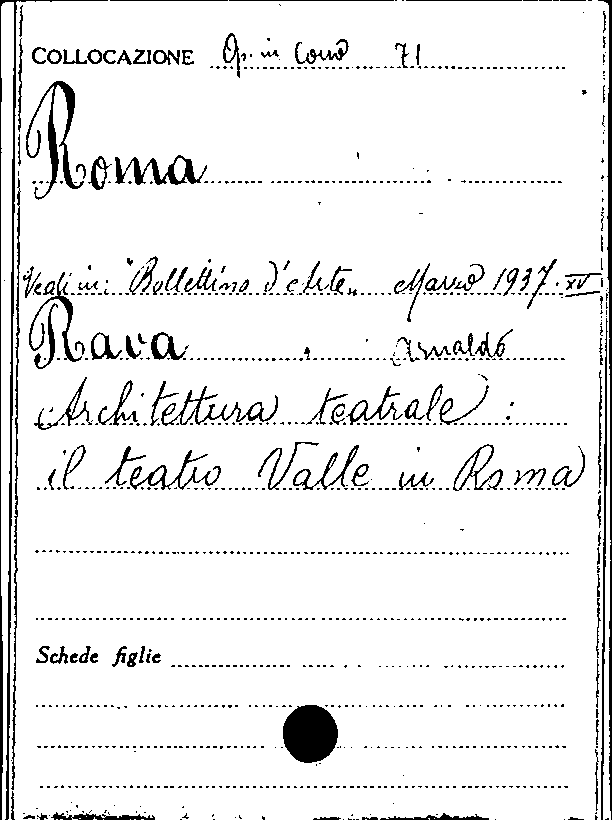 COLLOCAZIONE Op. in Corso 71
Roma
Vedi in: "Bollettino d'Arte„ Marzo 1937. XV
Rava Arnaldo
Architettura teatrale :
il teatro Valle in Roma
Schede figlie